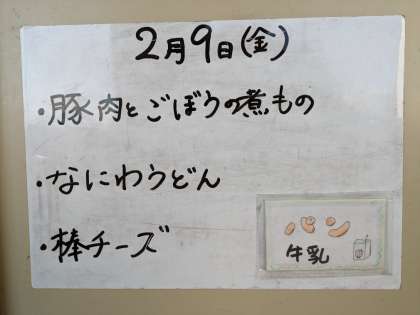 2月9日(金)
・豚肉とごぼうの煮もの
・なにわうどん
・棒チーズ
パン
牛乳